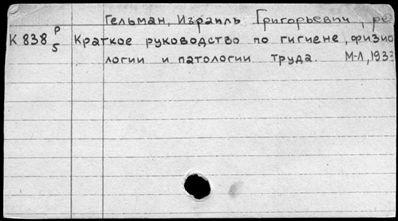 Гельман, Израиль Григорьевич, ре
К 838 Р/5 Краткое руководство по гигиене, физио
логии и патологии труда. М-Л, 1933